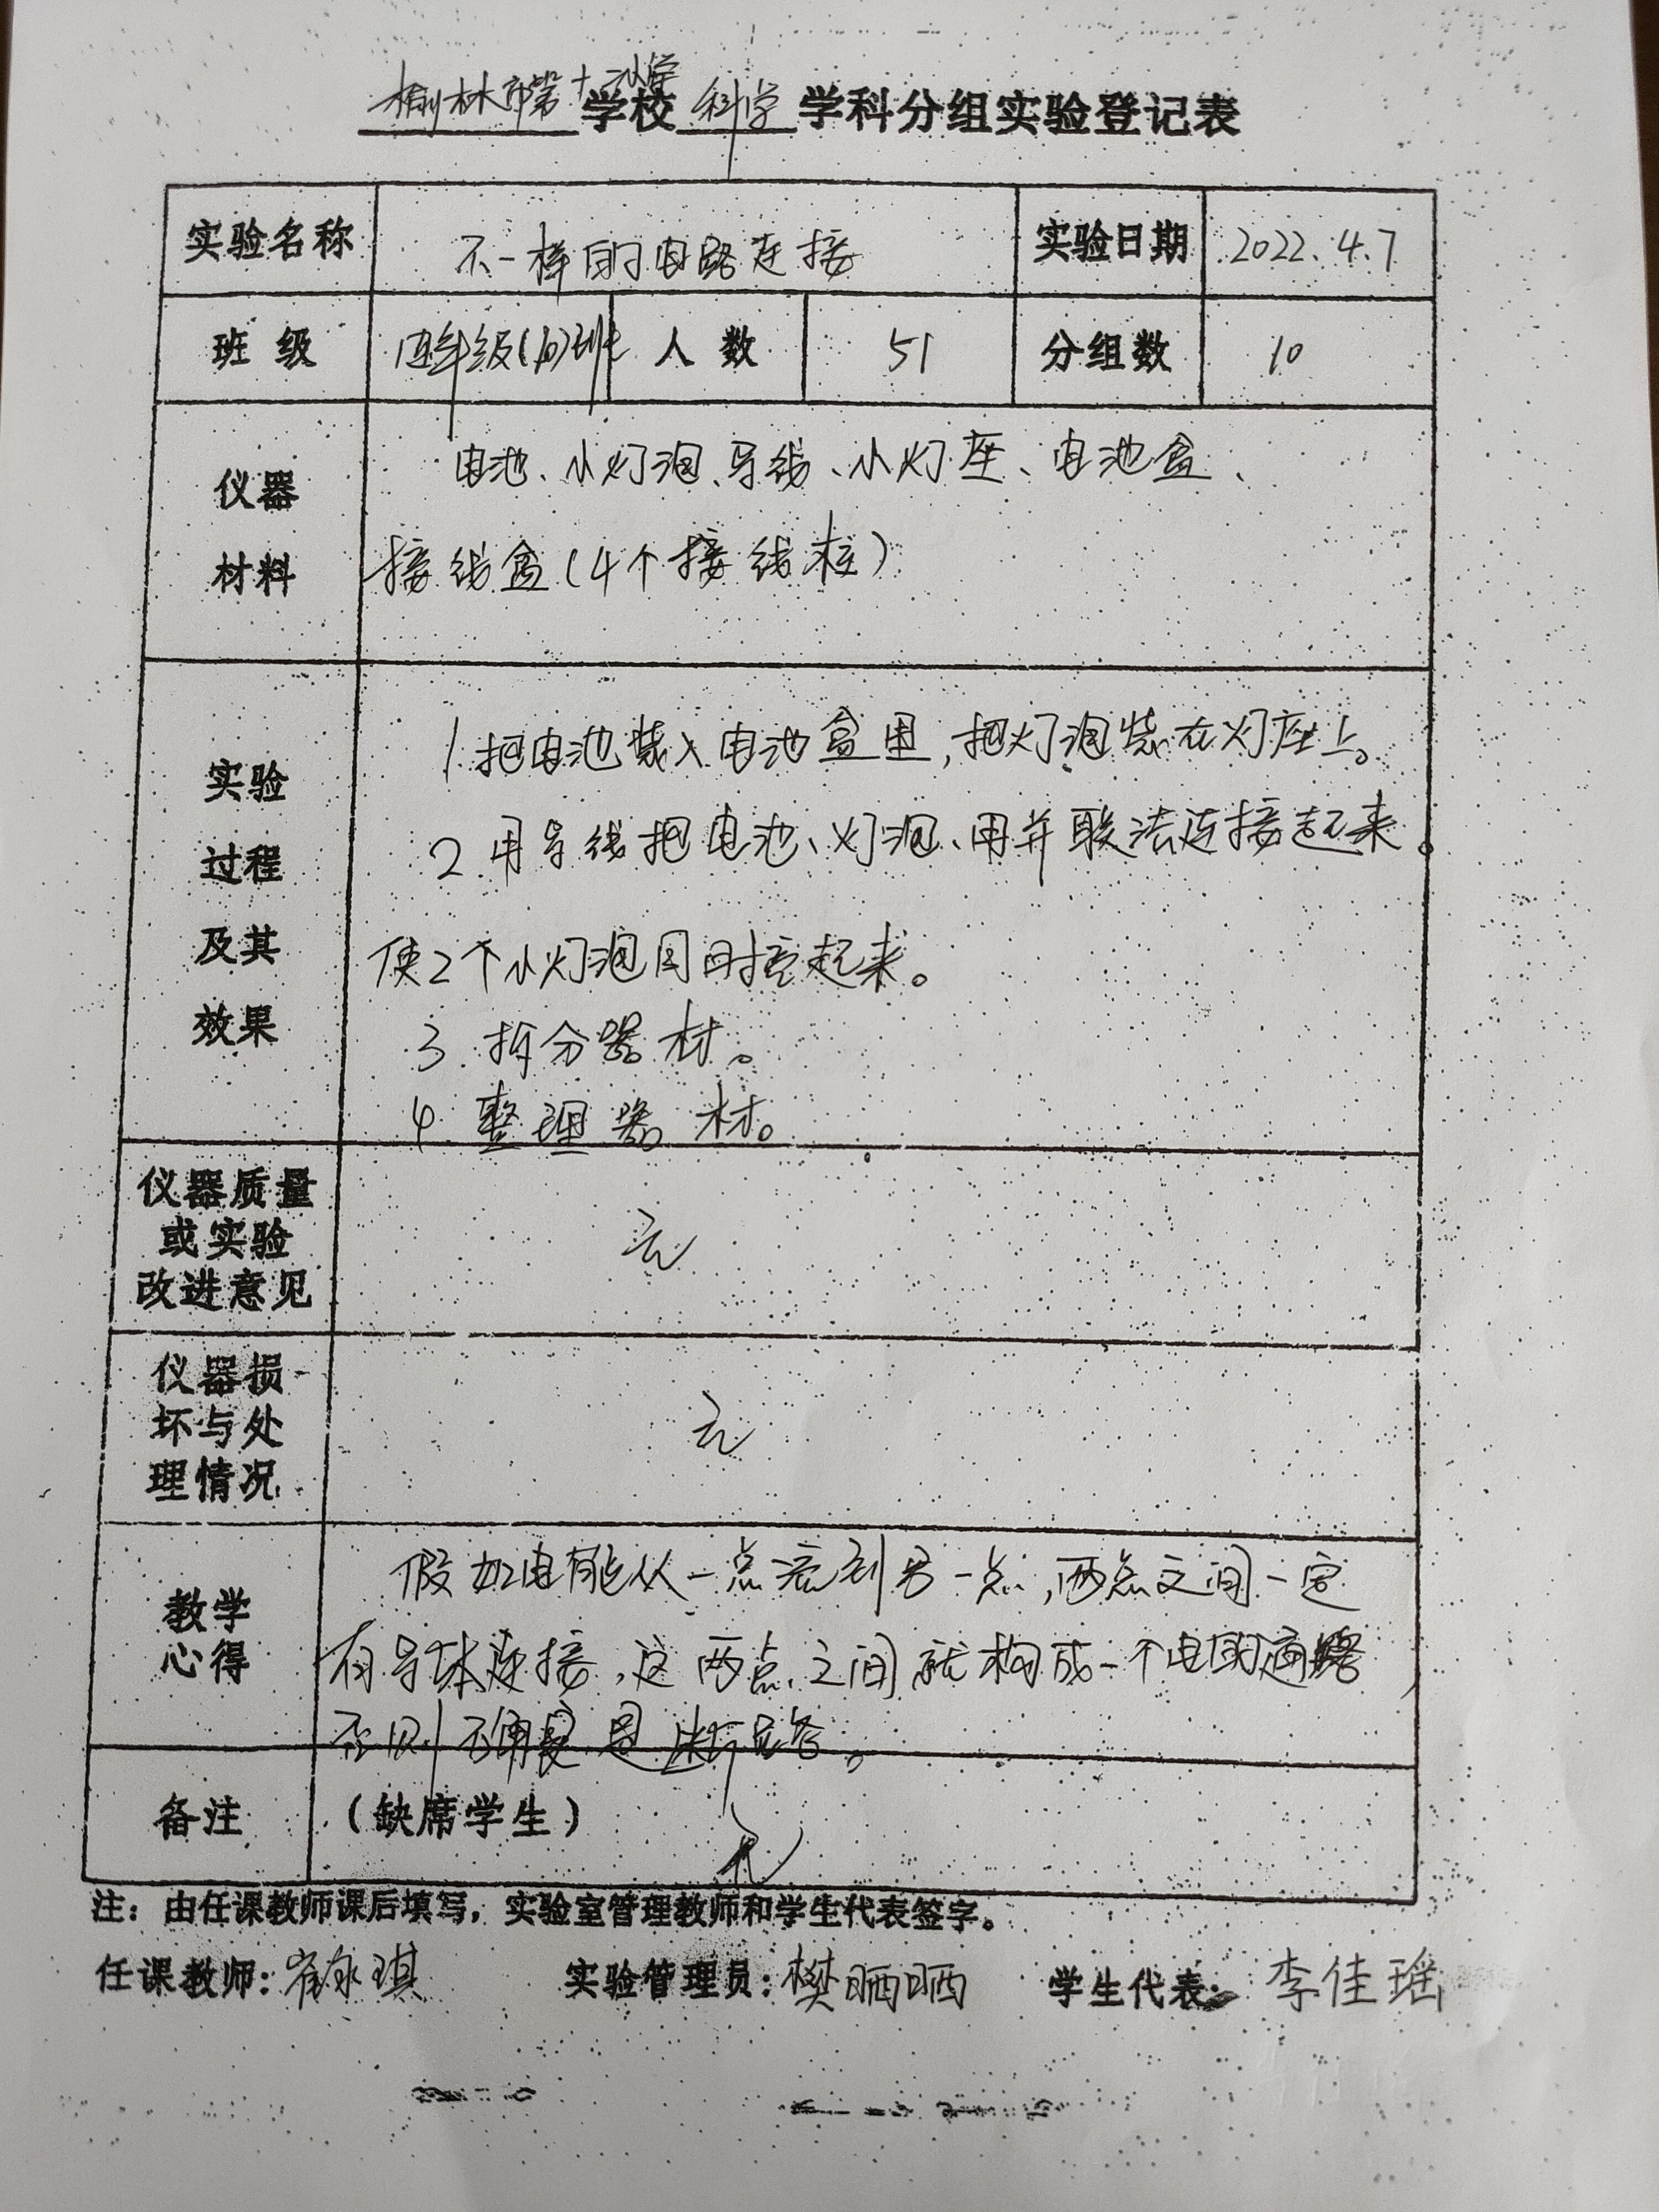 榆林市第十二小学学校科学学科分组实验登记表
实验名称 不一样的电路连接 实验日期 2022.4.7
班级 四年级(10)班 人数 51 分组数 10
仪器
材料
电池、小灯泡、导线、小灯座、电池盒、
接线盒(4个接线柱)
实验
过程
及其
效果
1.把电池装入电池盒里,把灯泡装在灯座上。
2.用导线把电池、灯泡、用并联法连接起来。
使2个小灯泡同时亮起来。
3.拆分器材。
4.整理器材。
仪器质量
或实验
改进意见
无
仪器损
坏与处
理情况
无
教学
心得
假如电能从一点流到另一点,两点之间一定
有导体连接,这两点之间就构成一个电的通路,
否则 是断路。
备注 (缺席学生) 无
注:由任课教师课后填写,实验室管理教师和学生代表签字。
任课教师: 实验管理员:樊晒晒 学生代表:李佳瑶